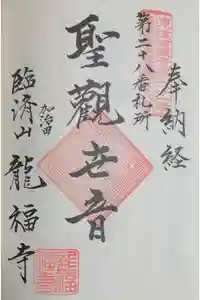 奉納経
第二十八番札所
聖觀世音
加治田
臨済山龍福寺